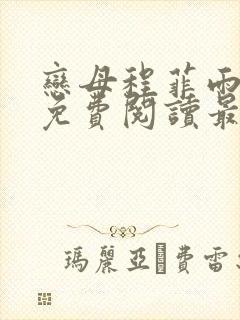 戀母程菲雨
免費閱讀最
瑪麗亞·費雷